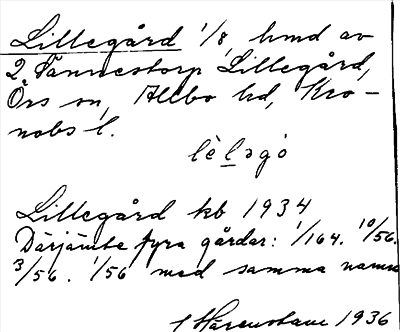 Lillegård 1/8 hmd av
2 Tannestorp Lillegård,
Örs sn, Allbo hd, Kro-
nobs l.
lèlegó
Lillegård kb 1934
Därjämte fyra gårdar: 1/164. 10/56.
3/56. 1/56 med samma namn
1936